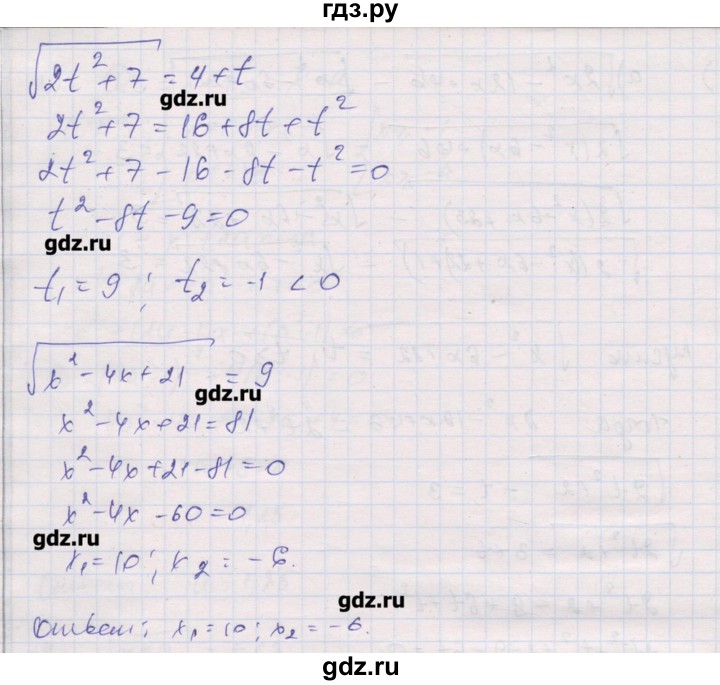 гдз.ру
√(2t² + 7) = 4 + t
gdz.ru
2t² + 7 = 16 + 8t + t²
2t² + 7 - 16 - 8t - t² = 0
t² - 8t - 9 = 0
gdz.ru
t₁ = 9 ; t₂ = -1 < 0
√(x² - 4x + 21) = 9
gdz.ru
x² - 4x + 21 = 81
x² - 4x + 21 - 81 = 0
x² - 4x - 60 = 0
gdz.ru
x₁ = 10 ; x₂ = -6.
gdz.ru
Ответ: x₁ = 10 ; x₂ = -6.
gdz.ru